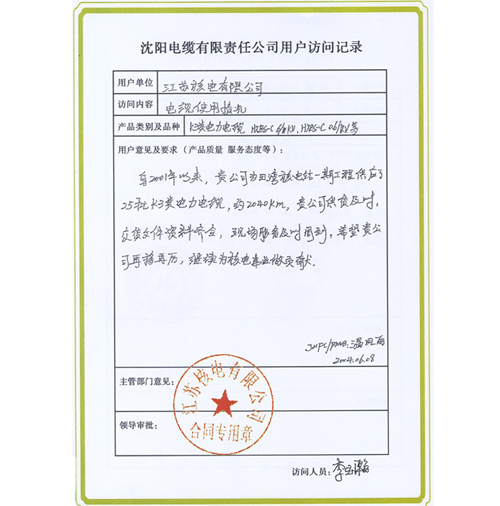 沈阳电缆有限责任公司用户访问记录
用户单位 江苏核电有限公司
访问内容 电缆使用情况
产品类别及品种 K3类电力电缆
用户意见及要求（产品质量 服务态度等）：
自2001年以来，贵公司为田湾核电站一期工程供应了
25批K3类电力电缆，约2040km，贵公司供货及时，
交货文件资料齐全，现场服务及时周到，希望贵公
司再接再厉，继续为核电事业做贡献.
2004.06.08
主管部门意见：
领导审批：
江苏核电有限公司
合同专用章
访问人员：